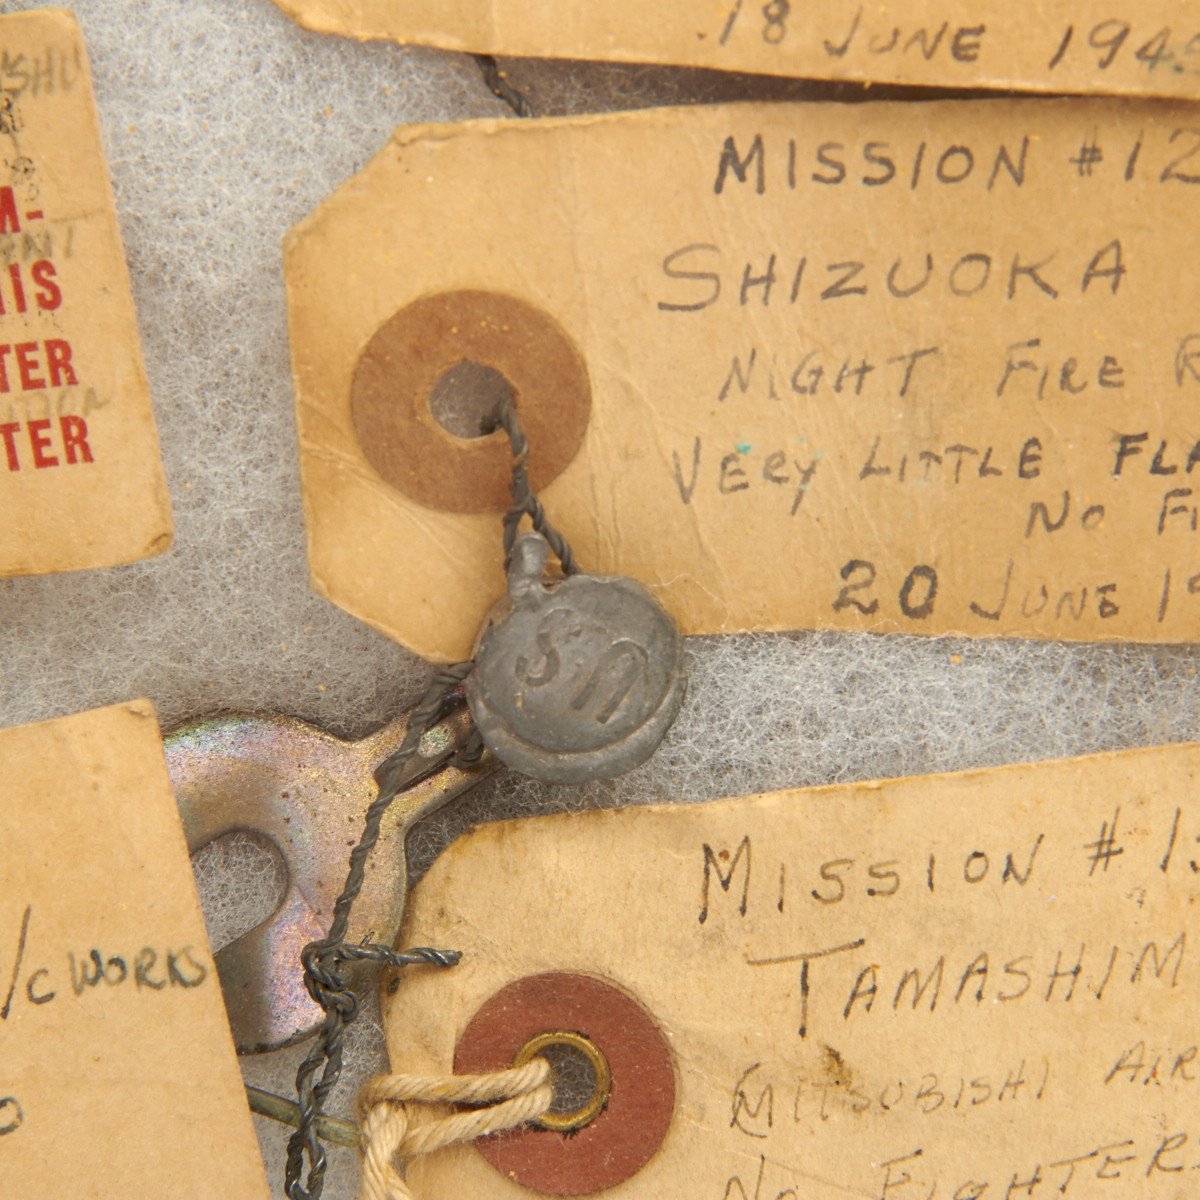 18 JUNE 194
MISSION #12
SHIZUOKA
NIGHT FIRE R
VERY LITTLE FLA
NO FI
20 JUNE 19
S.M
M-
HIS
TER
TER
MISSION #1
TAMASHIM
MITSUBISHI AIR
NO FIGHTER
/C WORKS